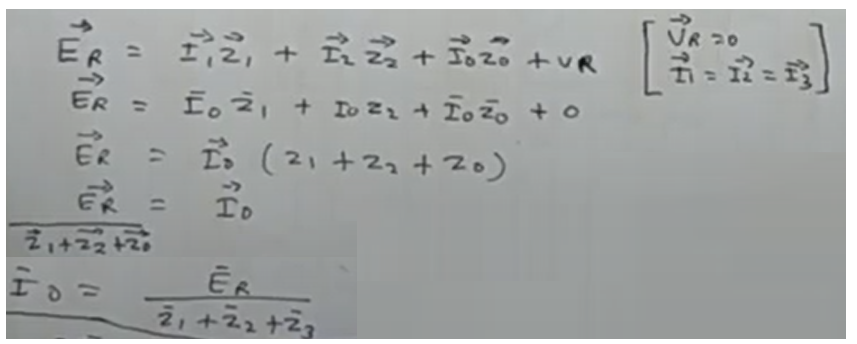 E⃗R = I⃗₁z⃗₁ + I⃗₂ z⃗₂ + I⃗₀z⃗₀ + VR
[V⃗R = 0
I⃗1 = I⃗2 = I⃗3]
E⃗R = Ī₀ z̄₁ + I₀ z₂ + Ī₀z̄₀ + 0
E⃗R = I⃗₀ (z₁ + z₂ + z₀)
E⃗R / z⃗₁+z⃗₂+z⃗₀ = I⃗₀
Ī₀ = ĒR / z̄₁ + z̄₂ + z̄₃